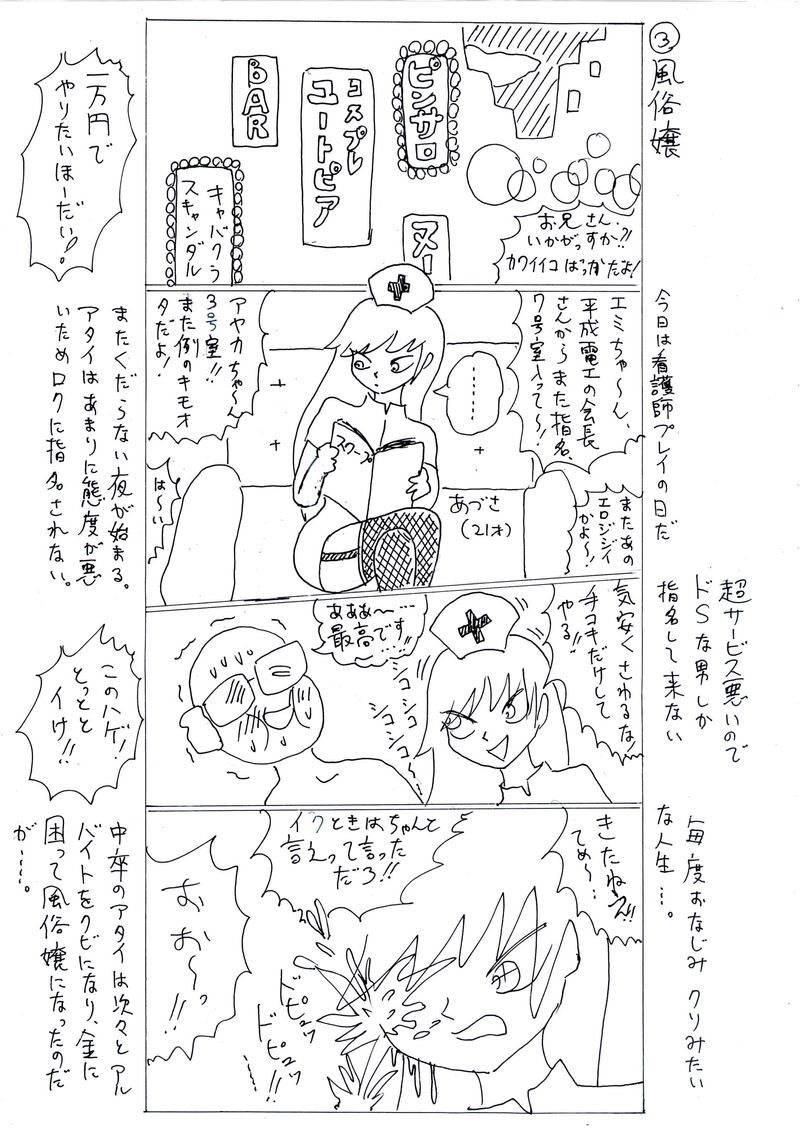 ③風俗嬢
ピンサロ
コスプレ
ユートピア
BAR
キャバクラ
スキャンダル
ヌー
お兄さん、
いかがっすか?!
カワイイコばっかだよ!
一万円で
やりたいほーだい!
今日は看護師プレイの日だ
エミちゃ〜ん、
平成電工の会長
さんからまた指名、
7号室入って〜!
またあの
エロジジイ
かよ〜!
………
あづさ
(21才)
スクープ
アヤカちゃ〜ん
3号室!!
また例のキモオ
タだよ!
は〜い
またくだらない夜が始まる。
アタイはあまりに態度が悪
いためロクに指名されない。
超サービス悪いので
ドSな男しか
指名して来ない
気安くさわるな!
手コキだけして
やる!!
シコシコ
シコシコ〜
あああ〜…
最高です…
このハゲ!
とっとと
イけ!!
毎度おなじみ クリみたい
な人生…。
きたねえ!!
てめ〜…
イクときはちゃんと
言えって言った
だろ!!
ドピュッ
ドピュッ
……!!
おお〜っ
…!!
中卒のアタイは次々とアル
バイトをクビになり、金に
困って風俗嬢になったのだ
が……。